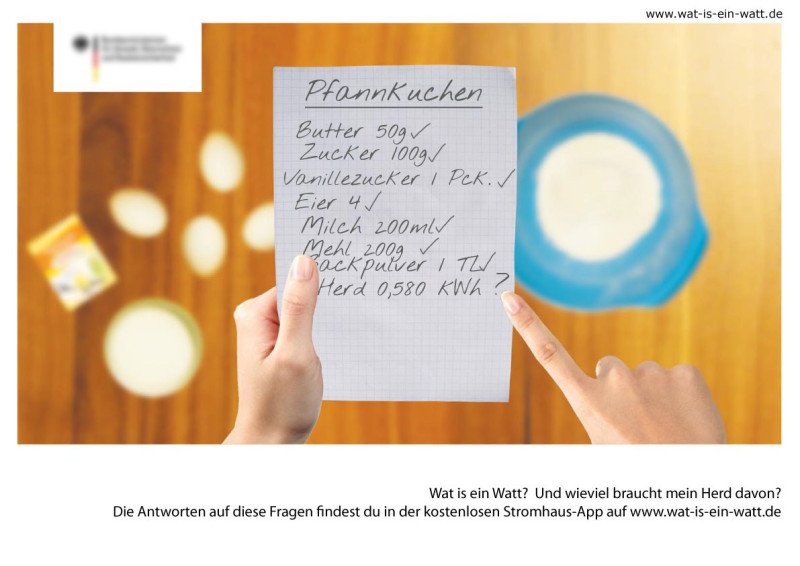 www.wat-is-ein-watt.de
Pfannkuchen
Butter 50g ✓
Zucker 100g ✓
Vanillezucker 1 Pck. ✓
Eier 4 ✓
Milch 200ml ✓
Mehl 200g ✓
Backpulver 1 TL ✓
Herd 0,580 KWh ?
Wat is ein Watt? Und wieviel braucht mein Herd davon?
Die Antworten auf diese Fragen findest du in der kostenlosen Stromhaus-App auf www.wat-is-ein-watt.de